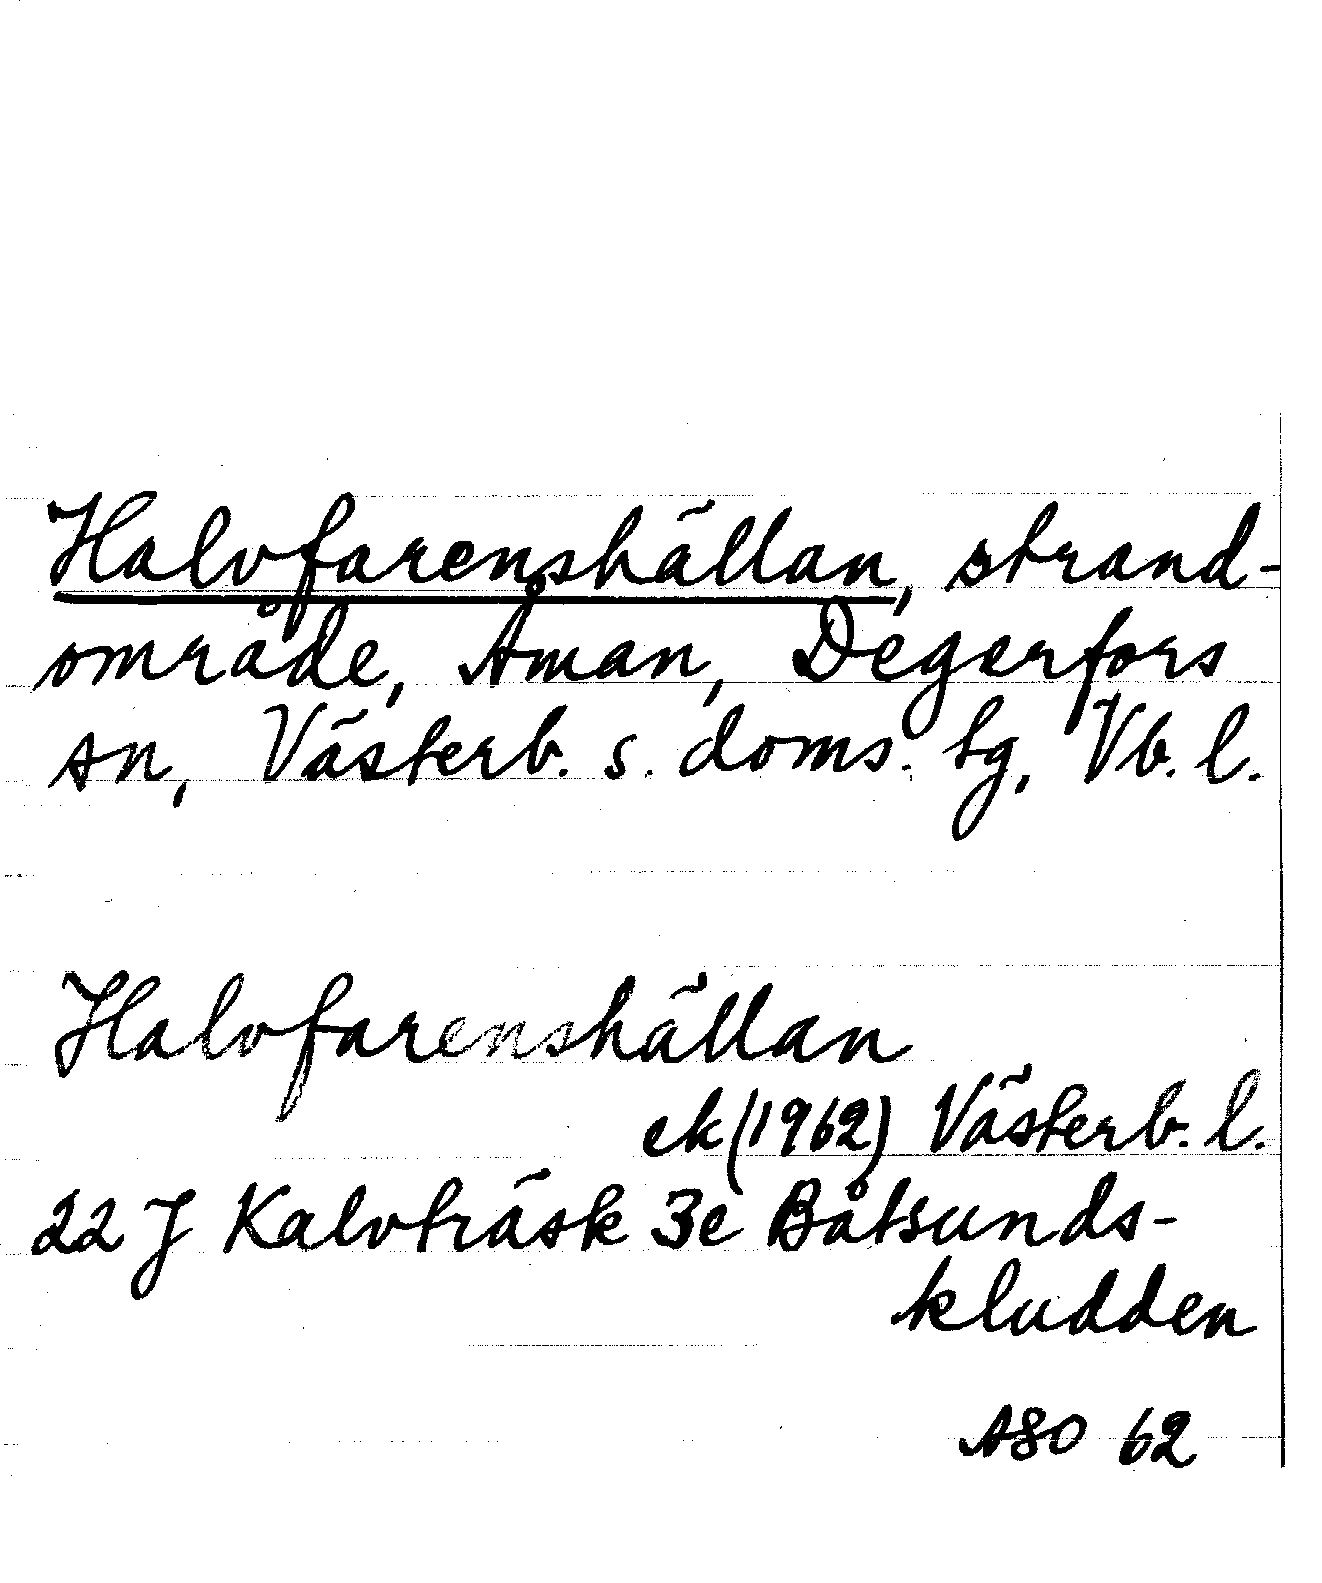 Halvfarenshällan, strand-
område, Åman, Degerfors
sn, Västerb. s. doms. tg, Vb. l.
Halvfarenshällan
ek (1962) Västerb. l.
22 J Kalvträsk 3e Båtsunds-
kludden
ASO 62